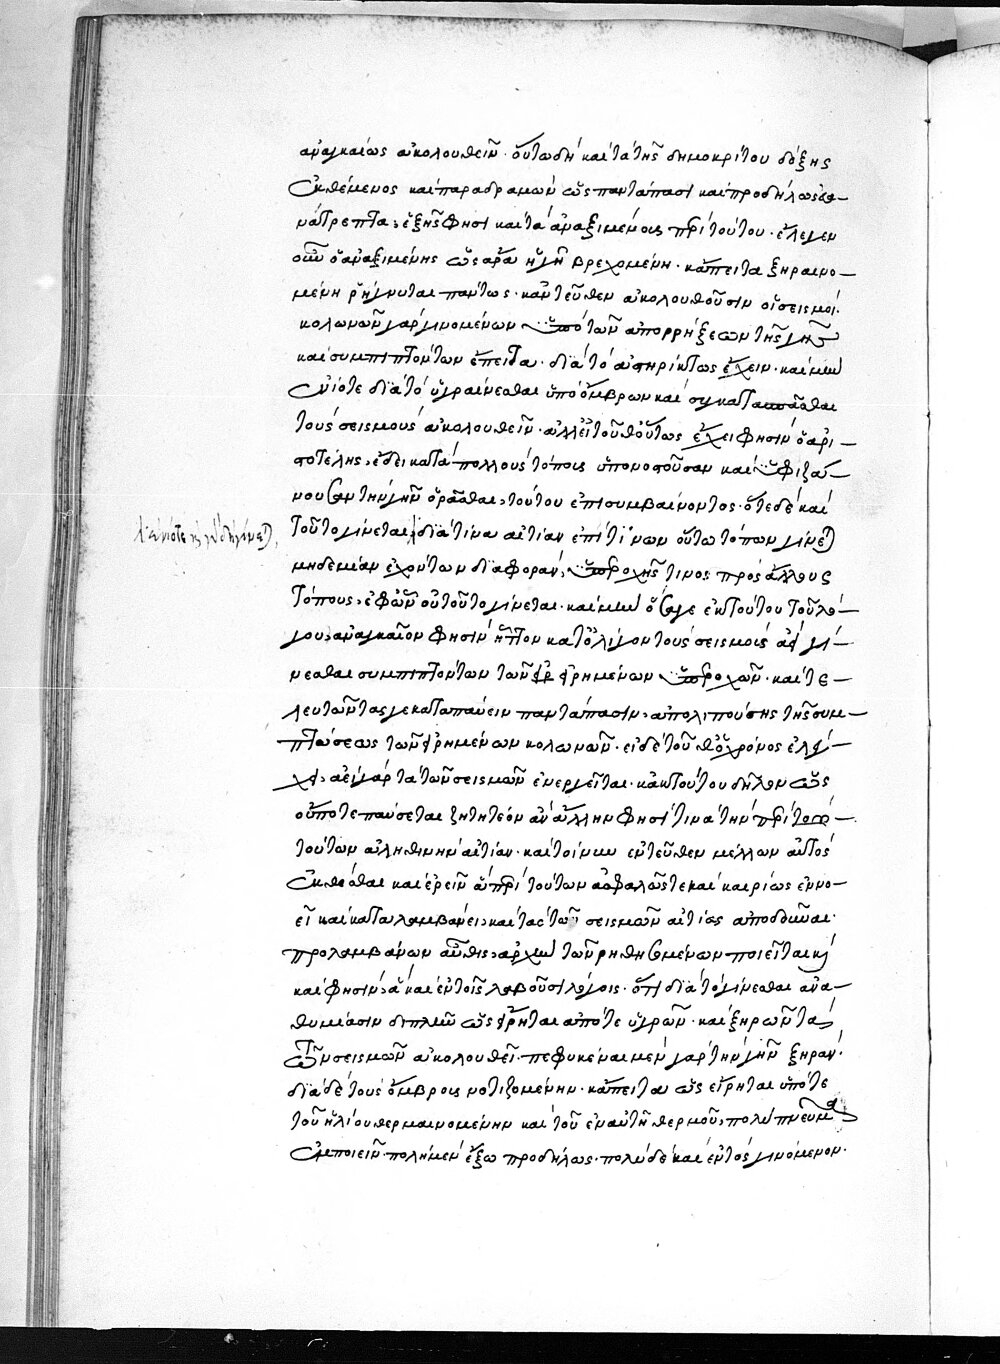 ἀναγκαίως ἀκολουθεῖν· οὕτω δὴ καὶ τὰ τῆς δημοκρίτου δόξης
ἐκθέμενος καὶ παραδραμὼν ὡς παντάπασι καὶ προδήλως εὐα-
νάτρεπτα, ἑξῆς φησὶ καὶ τὰ ἀναξιμένους περὶ τούτου· ἔλεγεν
οὖν ὁ ἀναξιμένης ὡς ἄρα ἡ γῆ βρεχομένη· κἄπειτα ξηραινο-
μένη ῥήγνυται πάντως· κἀντεῦθεν ἀκολουθοῦσιν οἱ σεισμοί·
κολωνῶν γὰρ γινομένων ὑπὸ τῶν ἀπορρήξεων τῆς γῆς
καὶ συμπιπτόντων ἔπειτα· διὰ τὸ ἀστηρίκτως ἔχειν· καὶ μὴν
ἐνίοτε διὰ τὸ ὑγραίνεσθαι ὑπὸ ὄμβρων καὶ συγκατασπᾶσθαι
τοὺς σεισμοὺς ἀκολουθεῖν· ἀλλ' εἰ τοῦθ' οὕτως ἔχει φησὶν ὁ ἀρι-
στοτέλης, ἔδει κατὰ πολλοὺς τόπους ὑπονοστοῦσαν καὶ ὑφιζά-
νουσαν τὴν γῆν ὁρᾶσθαι, τούτου ἐπισυμβαίνοντος· ὅτε δὲ καὶ
τοῦτο γίνεται διὰ τίνα αἰτίαν ἐπί τινων οὕτω τόπων γίνεται
μηδεμίαν ἐχόντων διαφορὰν, ὑπεροχῆς τινος πρὸς ἄλλους
τόπους, ἐφ' ὧν οὐ τοῦτο γίνεται· καὶ μὴν ὅσγε ἐκ τούτου τοῦ λό-
γου, ἀναγκαῖον φησὶν ἧττον κατ' ὀλίγον τοὺς σεισμοὺς ἀεὶ γί-
νεσθαι συμπιπτόντων τῶν εἰρημένων ὑπεροχῶν· καὶ τε-
λευτῶντας γε καταπαύειν παντάπασιν, ἀπολιπούσης τῆς συμ-
πτώσεως τῶν εἰρημένων κολωνῶν· εἰ δὲ τοῦθ' ὁ χρόνος ἐλέγ-
χει, ἀεὶ γὰρ τὰ τῶν σεισμῶν ἐνεργεῖται· κἀκ τούτου δῆλον ὡς
οὔποτε παύσεται ζητητέον ἂν ἄλλην φησὶ τινὰ τὴν περὶ
τούτων ἀληθινὴν αἰτίαν· καὶ τοίνυν ἐντεῦθεν μέλλων αὐτὸς
ἐκθέσθαι καὶ ἐρεῖν ἃ περὶ τούτων ἀσφαλῶς τε καὶ καιρίως ἐννο-
εῖ καὶ καταλαμβάνει, καὶ τὰς τῶν σεισμῶν αἰτίας ἀποδοῦναι·
προλαμβάνων αὖθις, ἀρχὴν τῶν ῥηθησομένων ποιεῖται κ
καὶ φησὶν, ἃ καὶ ἐν τοῖς λαβοῦσι λόγοις· ὅτι διὰ τὸ γίνεσθαι ἀνα-
θυμίασιν διπλῆν ὡς εἴρηται ἀπό τε ὑγρῶν· καὶ ξηρῶν τὰ
τῶν σεισμῶν ἀκολουθεῖ· πεφυκέναι μὲν γὰρ τὴν γῆν ξηράν·
διὰ δὲ τοὺς ὄμβρους νοτιζομένην· κἄπειτα ὡς εἴρηται ὑπό τε
τοῦ ἡλίου θερμαινομένην καὶ τοῦ ἐν αὐτῇ θερμοῦ, πολὺ πνεῦμα
ἐμποιεῖν· πολὺ μὲν ἔξω προδήλως· πολὺ δὲ καὶ ἐντὸς γινόμενον·